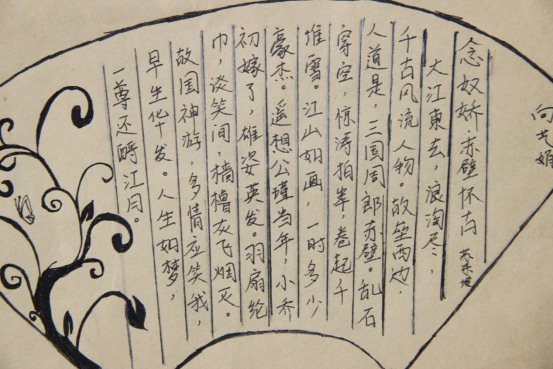 念奴娇·赤壁怀古 苏东坡
大江東去，浪淘尽，
千古风流人物。故垒西边，
人道是，三国周郎赤壁。乱石
穿空，惊涛拍岸，卷起千
堆雪。江山如画，一时多少
豪杰。遥想公瑾当年，小乔
初嫁了，雄姿英发。羽扇纶
巾，谈笑间，樯橹灰飞烟灭。
故国神游，多情应笑我，
早生华发。人生如梦，
一尊还酹江月。